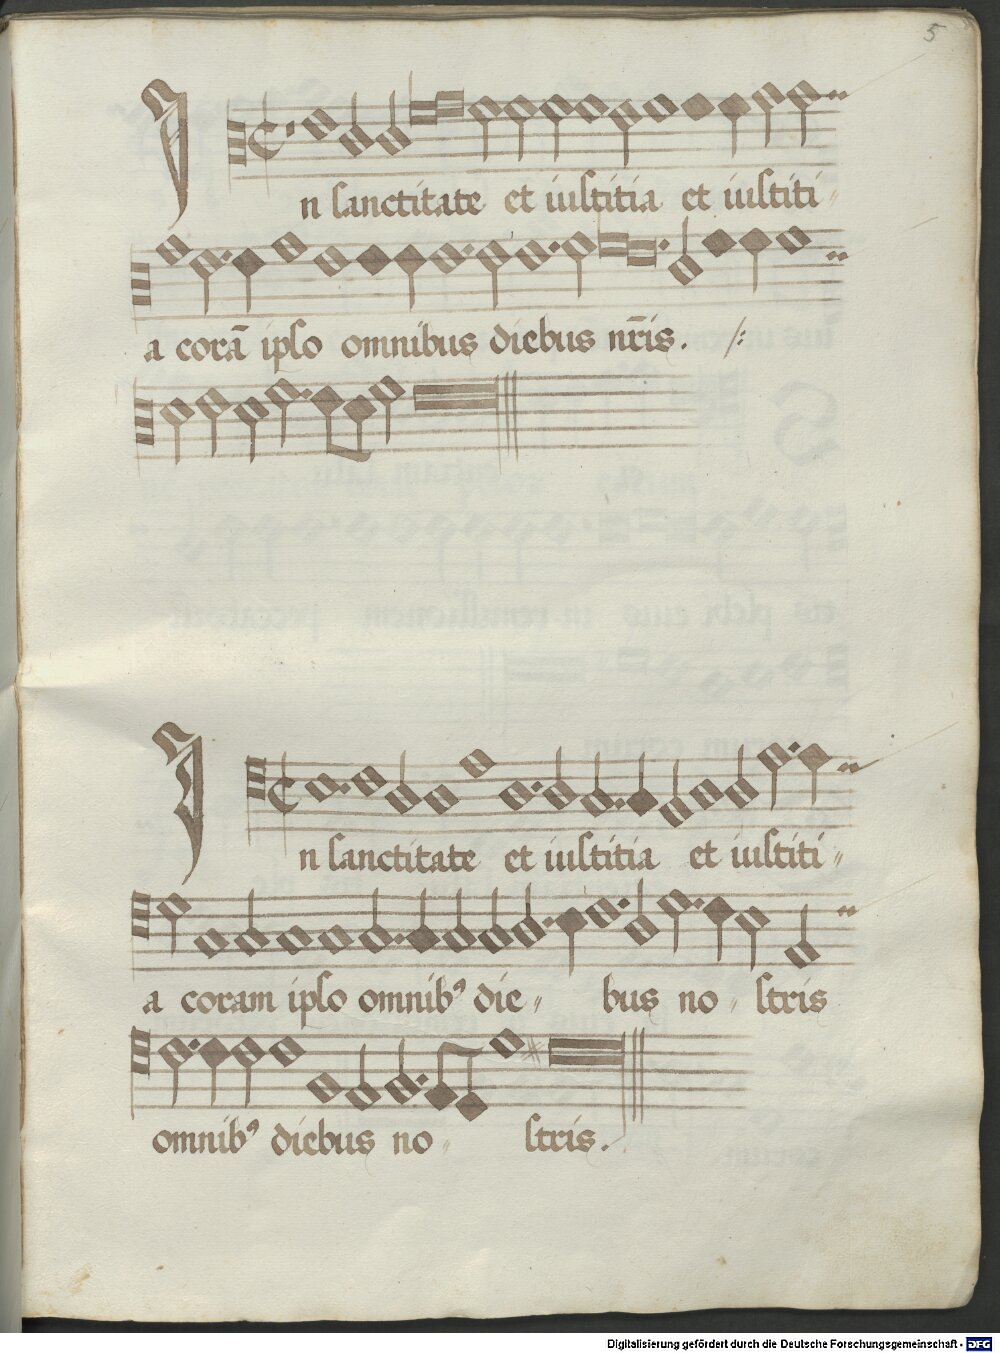 5
In sanctitate et iustitia et iustiti-
a corā ipso omnibus diebus nr̄is. /:
In sanctitate et iustitia et iustiti-
a coram ipso omnibꝰ die- bus no- stris
omnibꝰ diebus no- stris.
Digitalisierung gefördert durch die Deutsche Forschungsgemeinschaft - DFG